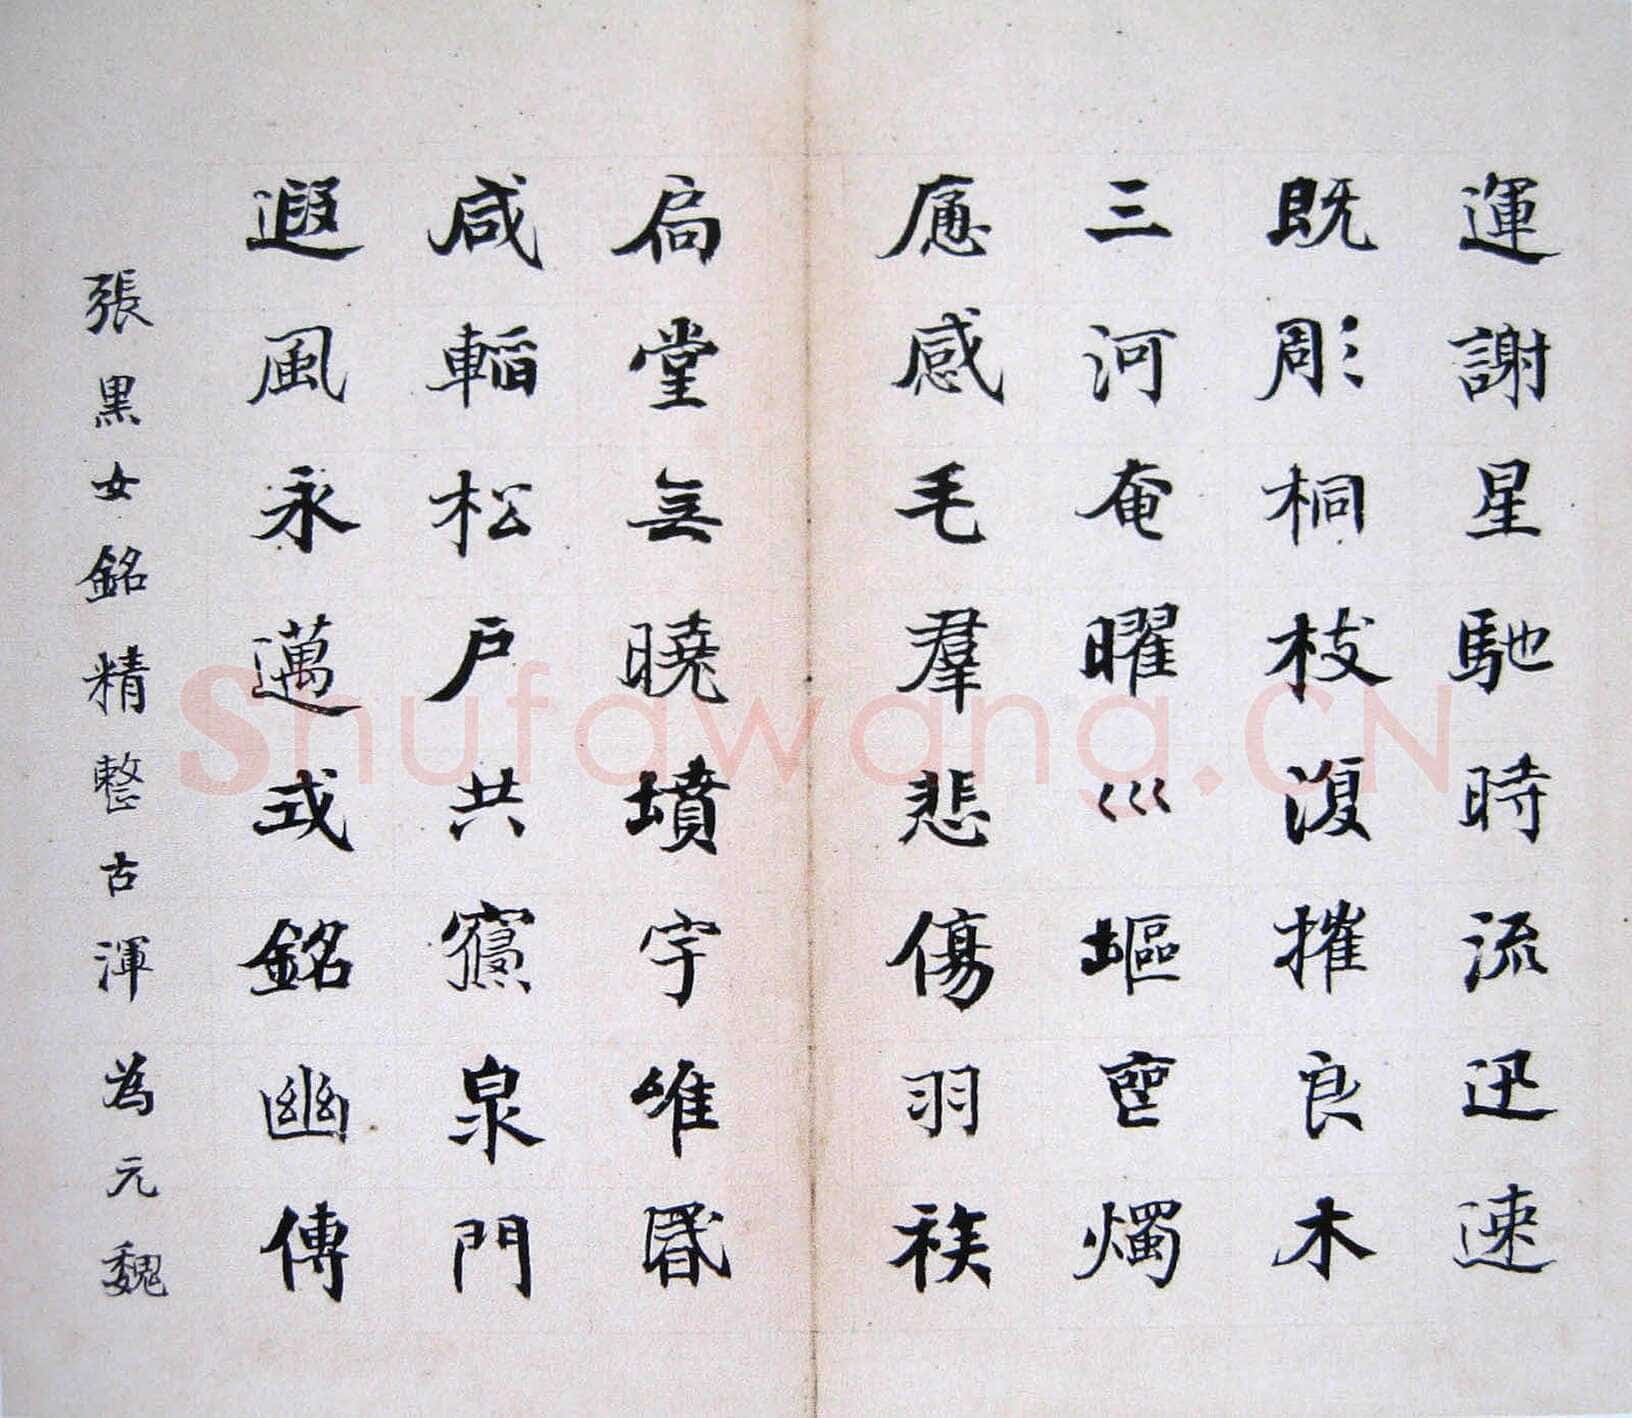 運謝星馳時流迅速
既彫桐枝復摧良木
三河奄曜巛塸喪燭
應感毛羣悲傷羽族
扃堂無曉墳宇唯昬
咸韜松戶共寢泉門
遐風永邁式銘幽傳
張黑女銘精整古渾為元魏
Shufawang.CN